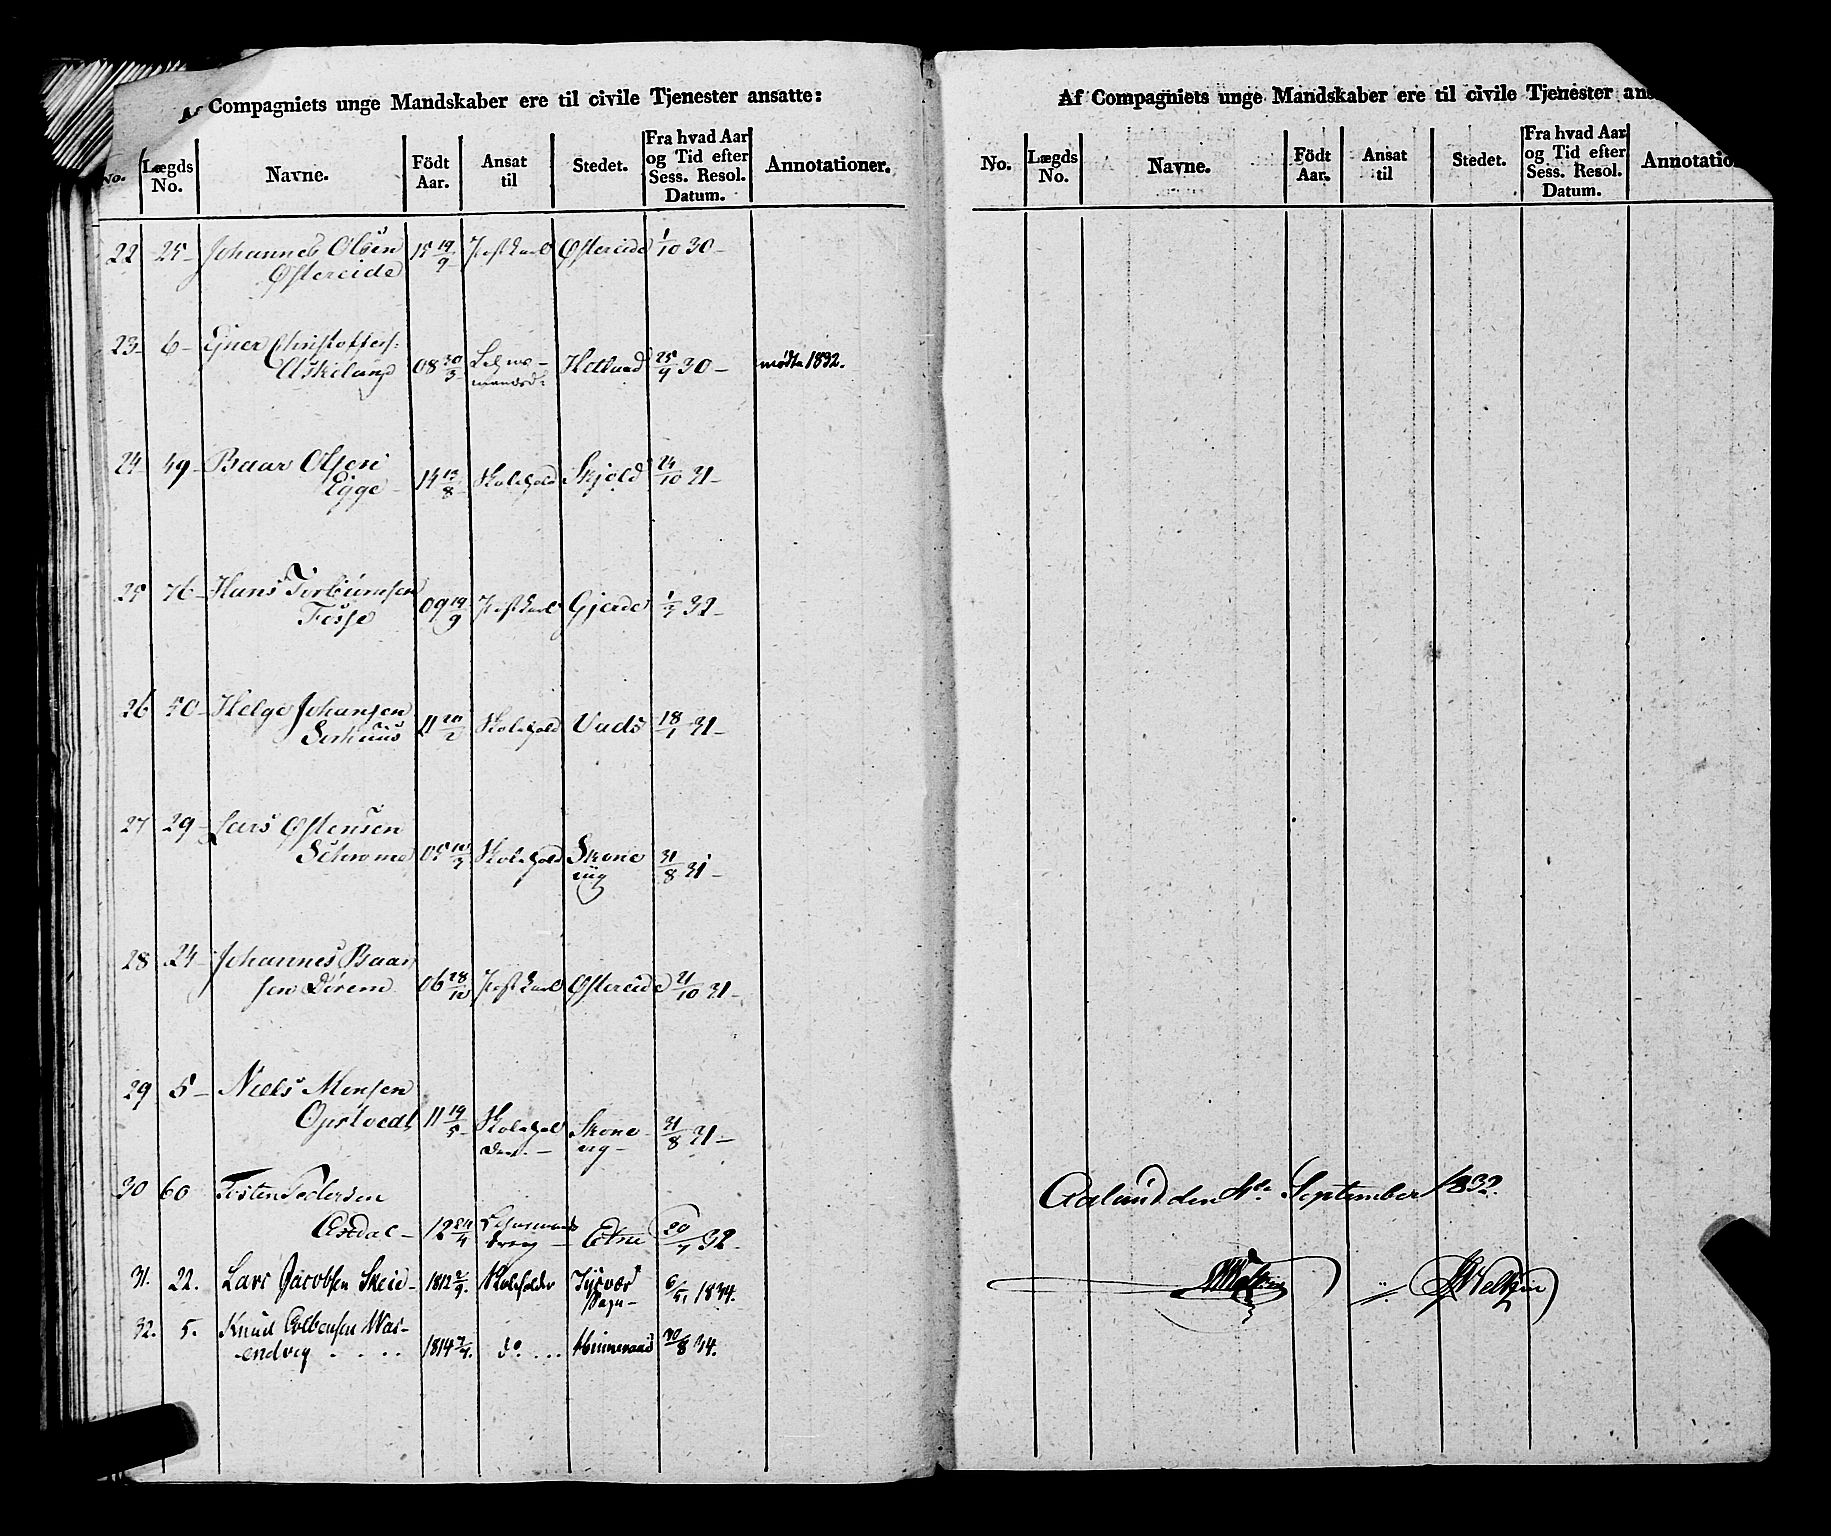 Af Compagniets unge Mandskaber ere til civile Tjenester ansatte:
No. Lægds No. Navne. Födt Aar. Ansat til Stedet. Fra hvad Aar og Tid efter Sess. Resol. Datum. Annotationer.
22 25 Johannes Olsen
Østereide 15 19/9 Postkarl Østereide 1/10 30
23 6 Ejner Christoffers:
Askeland 08 30/3 Hetland 25/9 30 mødte 1832.
24 49 Baar Olsen
Egge 14 13/8 Skolehold Skjold 24/10 31
25 76 Hans Torbiørnsen
Fosse 09 19/9 Postkarl Gjerde 32
26 Helge Johansen
11 20/2 Skolehold Vads 18/1 31
27 29 Lars Østensen
05 Skolehold Skone
vig 31/8 31
28 24 Johannes Baar
sen 06 28/10 Postkarl Østereide 21/10 31
29 5 Niels Monsen
Opstvedt 11 19/5 Skolehol
der Skone
vig 31/8 31
30 60 Tosten Pedersen
12 24/4 Lehnsmands
dreng Etne 32
31. 22. Lars Jacobsen Skeie 1812 Skoleholder Tysvær
Sogn 1834.
32. 5. Knud
endvig 1814 do 30/8 34.
Af Compagniets unge Mandskaber ere til civile Tjenester ans
No. Lægds No. Navne. Födt Aar. Ansat til Stedet. Fra hvad Aar og Tid efter Sess. Resol. Datum. Annotation
Aalund den 4de September 1832.